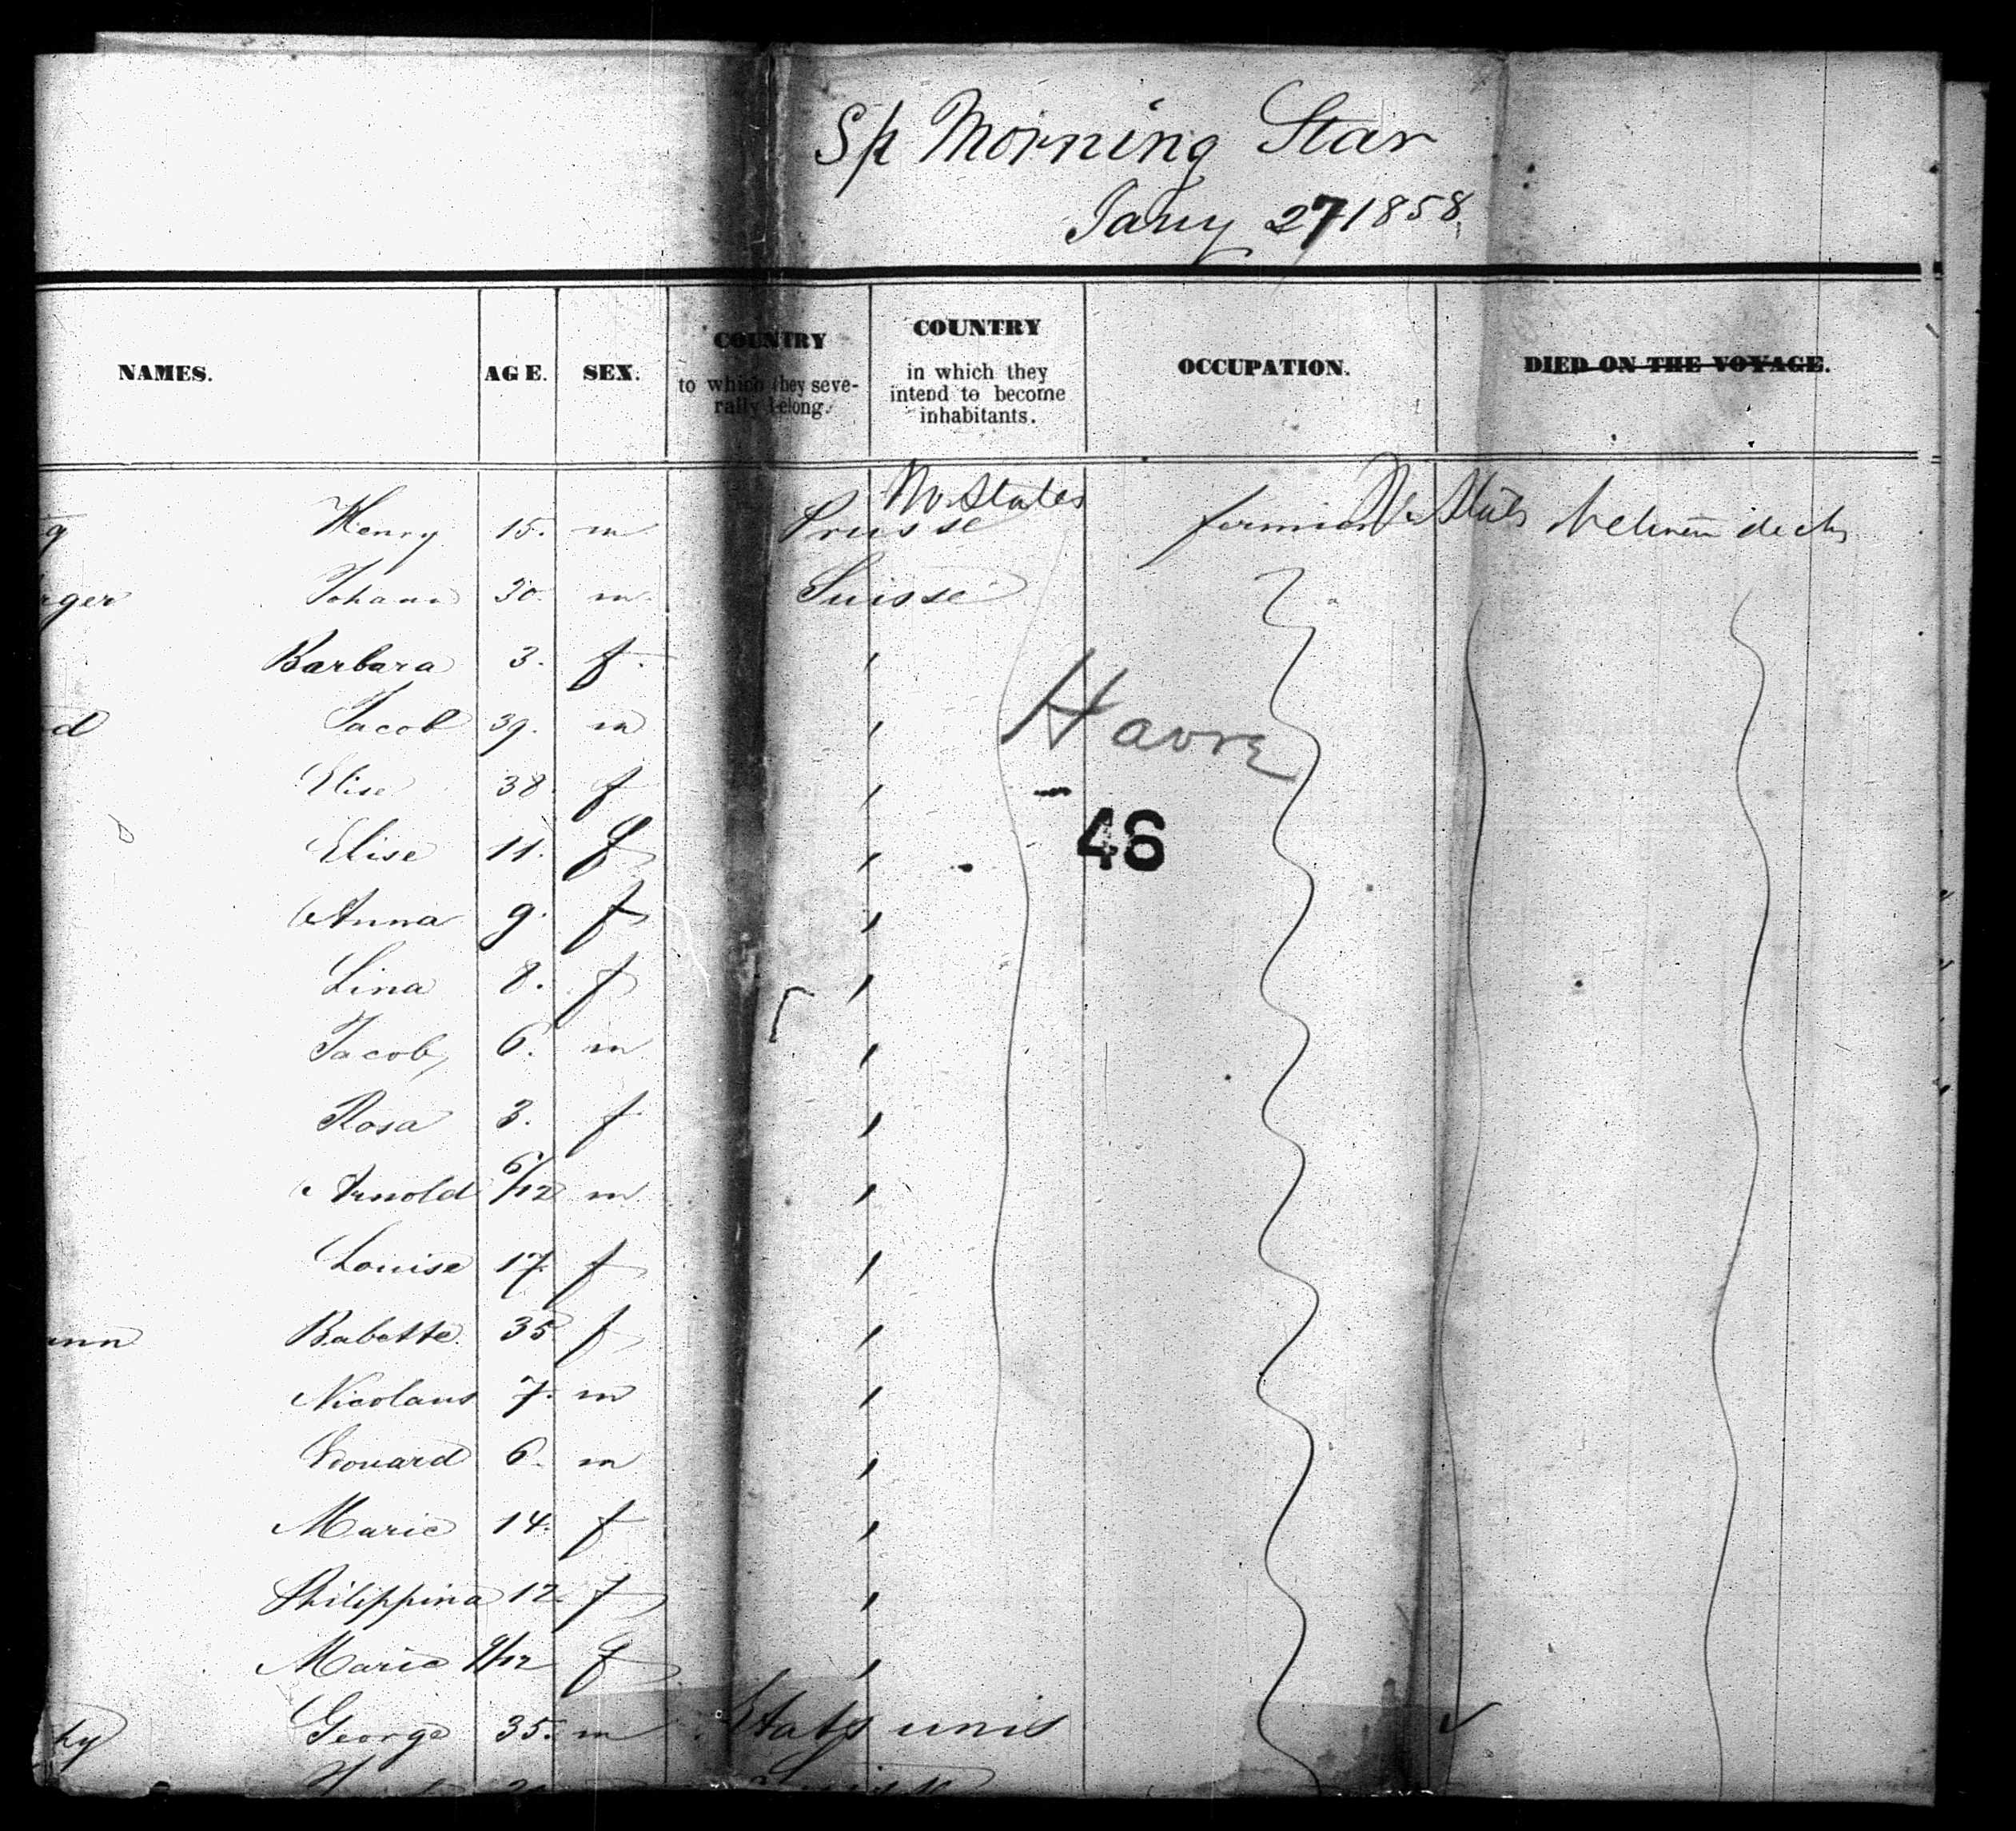 Sp Morning Star
Jany 27 1858
NAMES. AGE. SEX. COUNTRY to which they severally belong. COUNTRY in which they intend to become inhabitants. OCCUPATION. DIED ON THE VOYAGE.
Henry 15. m Prusse States
rger Johann 30. m. Suisse
Barbara 3. f.
d Jacob 39. m
Havre
Elise 38. f
46
Elise 11. f
Anna 9. f
Lina 8. f
Jacob 6. m
Rosa 3. f
Arnold 6/12 m
Louise 17. f
ann Babette 35 f
Nicolaus 7. m
Edouard 6. m
Marie 14. f
Philippina 12. f
Marie 9/12 f
hy George 35. m Etats unis